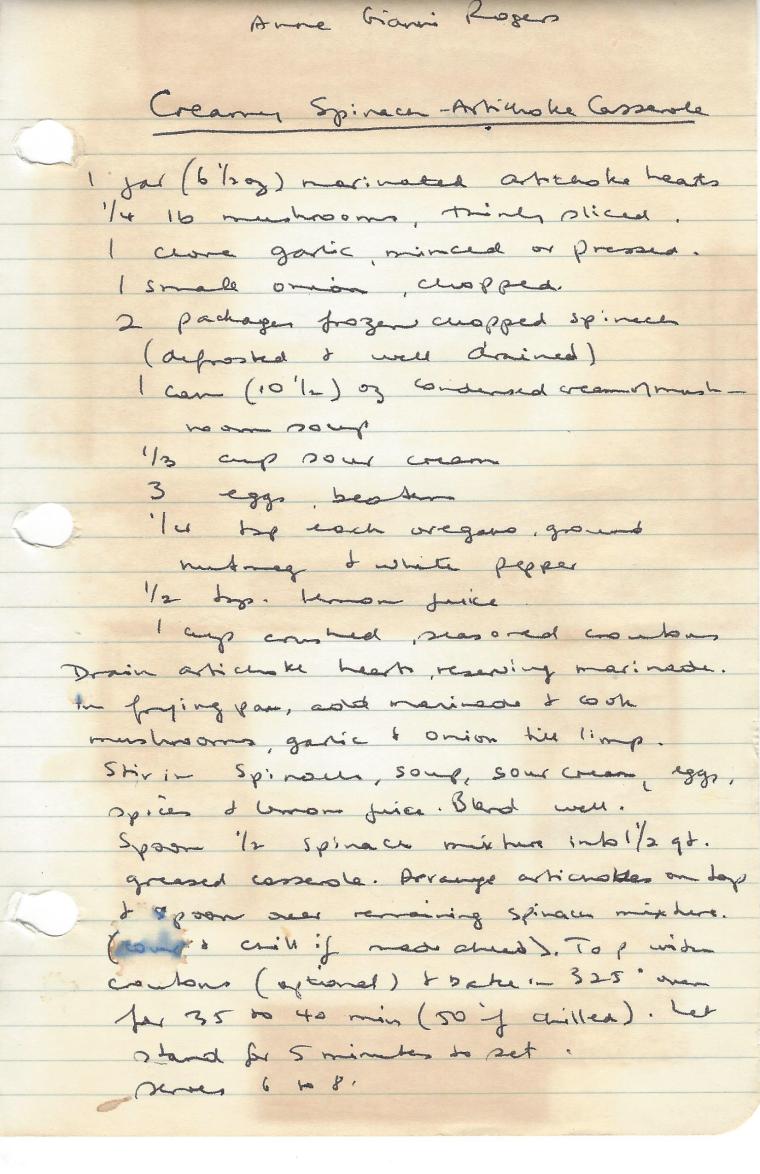 Anne Gianni Rogers
Creamy Spinach-Artichoke Casserole
1 jar (6 1/2 oz) marinated artichoke hearts
1/4 lb mushrooms, thinly sliced.
1 clove garlic, minced or pressed.
1 small onion, chopped.
2 packages frozen chopped spinach
(defrosted & well drained)
1 can (10 1/2) oz condensed cream of mush-
room soup
1/3 cup sour cream
3 eggs, beaten
1/4 tsp each oregano, ground
nutmeg & white pepper
1/2 tsp. lemon juice
1 cup crushed, seasoned croutons
Drain artichoke hearts, reserving marinade.
In frying pan, add marinade & cook
mushrooms, garlic & onion till limp.
Stir in Spinach, soup, sour cream, eggs,
spices & lemon juice. Blend well.
Spoon 1/2 spinach mixture into 1 1/2 qt.
greased casserole. Arrange artichokes on top
& spoon over remaining spinach mixture.
(cover & chill if made ahead). Top with
croutons (optional) & bake in 325° oven
for 35 to 40 min (50 if chilled). Let
stand for 5 minutes to set.
serves 6 to 8.